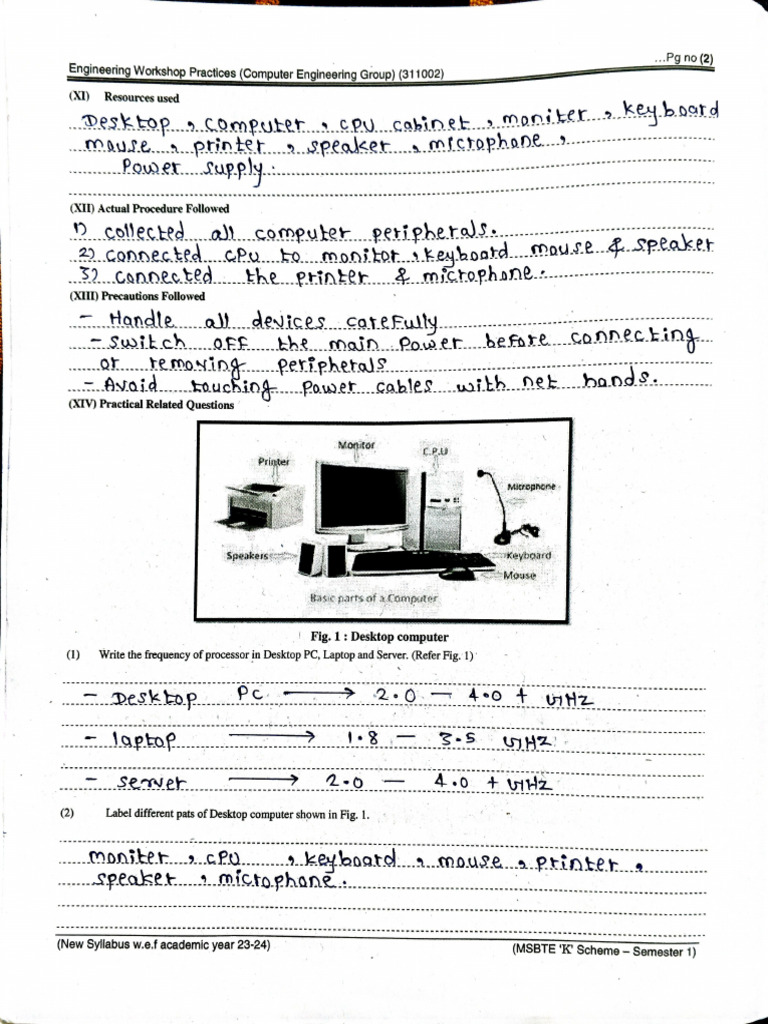 ...Pg no (2)
Engineering Workshop Practices (Computer Engineering Group) (311002)
(XI) Resources used
Desktop, computer, cpu cabinet, moniter, keyboard
mouse, printer, speaker, microphone,
Power supply.
(XII) Actual Procedure Followed
1) collected all computer peripherals.
2) connected cpu to monitor, keyboard mouse & speaker
3) connected the printer & microphone.
(XIII) Precautions Followed
- Handle all devices carefully
- switch off the main power before connecting
or removing peripherals
- Avoid touching power cables with wet hands.
(XIV) Practical Related Questions
Monitor
C.P.U
Printer
Microphone
Speakers
Keyboard
Mouse
Basic parts of a Computer
Fig. 1 : Desktop computer
(1) Write the frequency of processor in Desktop PC, Laptop and Server. (Refer Fig. 1)
- Desktop PC → 2.0 - 4.0 + GHz
- laptop → 1.8 - 3.5 GHz
- server → 2.0 - 4.0 + GHz
(2) Label different pats of Desktop computer shown in Fig. 1.
moniter, cpu, keyboard, mouse, printer,
speaker, microphone.
(New Syllabus w.e.f academic year 23-24)
(MSBTE 'K' Scheme – Semester 1)